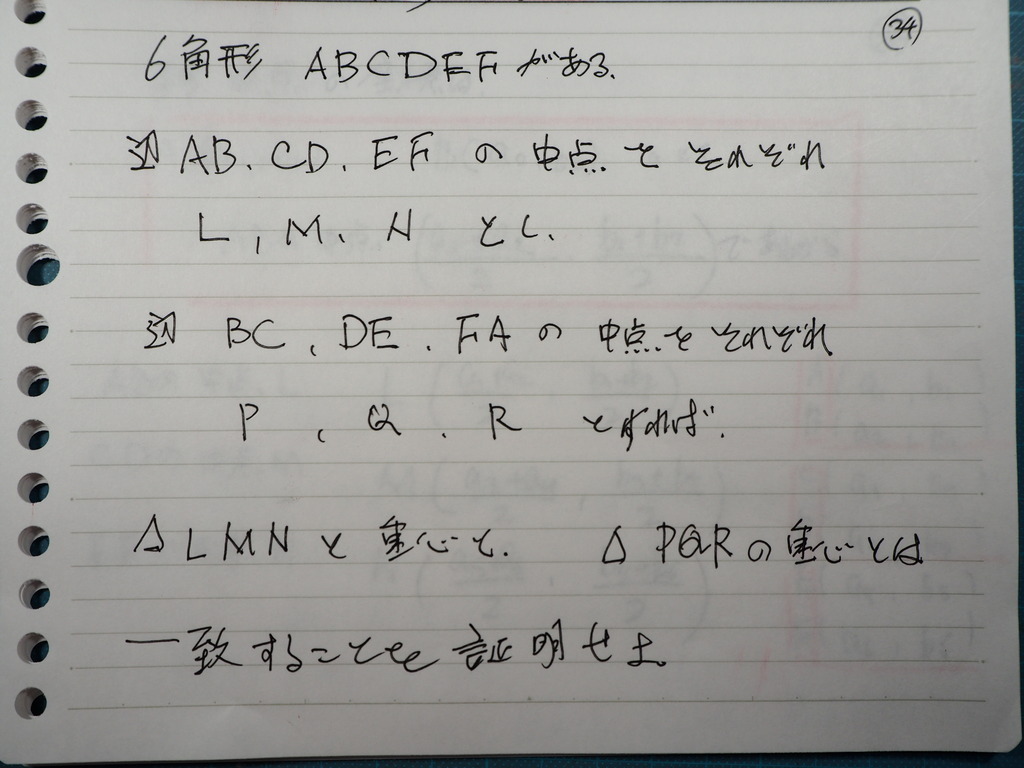 ㉞
6角形 ABCDEFがある.
辺AB、CD、EF の 中点を それぞれ
L, M、N とし、
辺 BC、DE、FA の 中点をそれぞれ
P 、Q 、R とすれば、
△LMNと 重心と、 △PQRの重心とは
一致することを 証明せよ